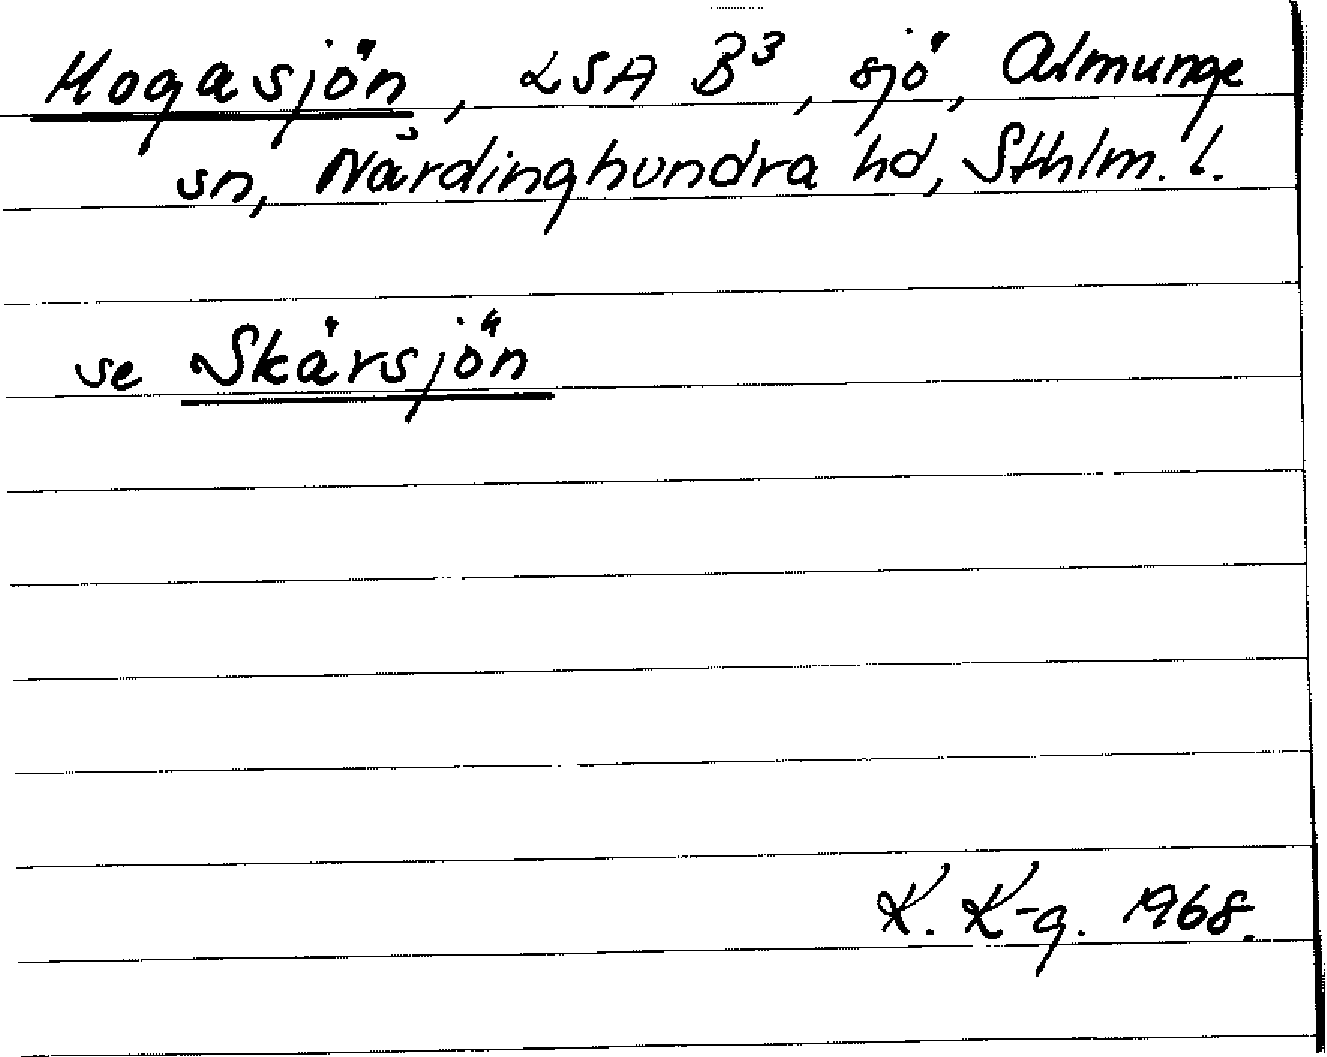 Hogasjön, LSA B³, sjö, Almunge
sn, Närdinghundra hd, Sthlm. l.
se Skärsjön
K. K-g. 1968.